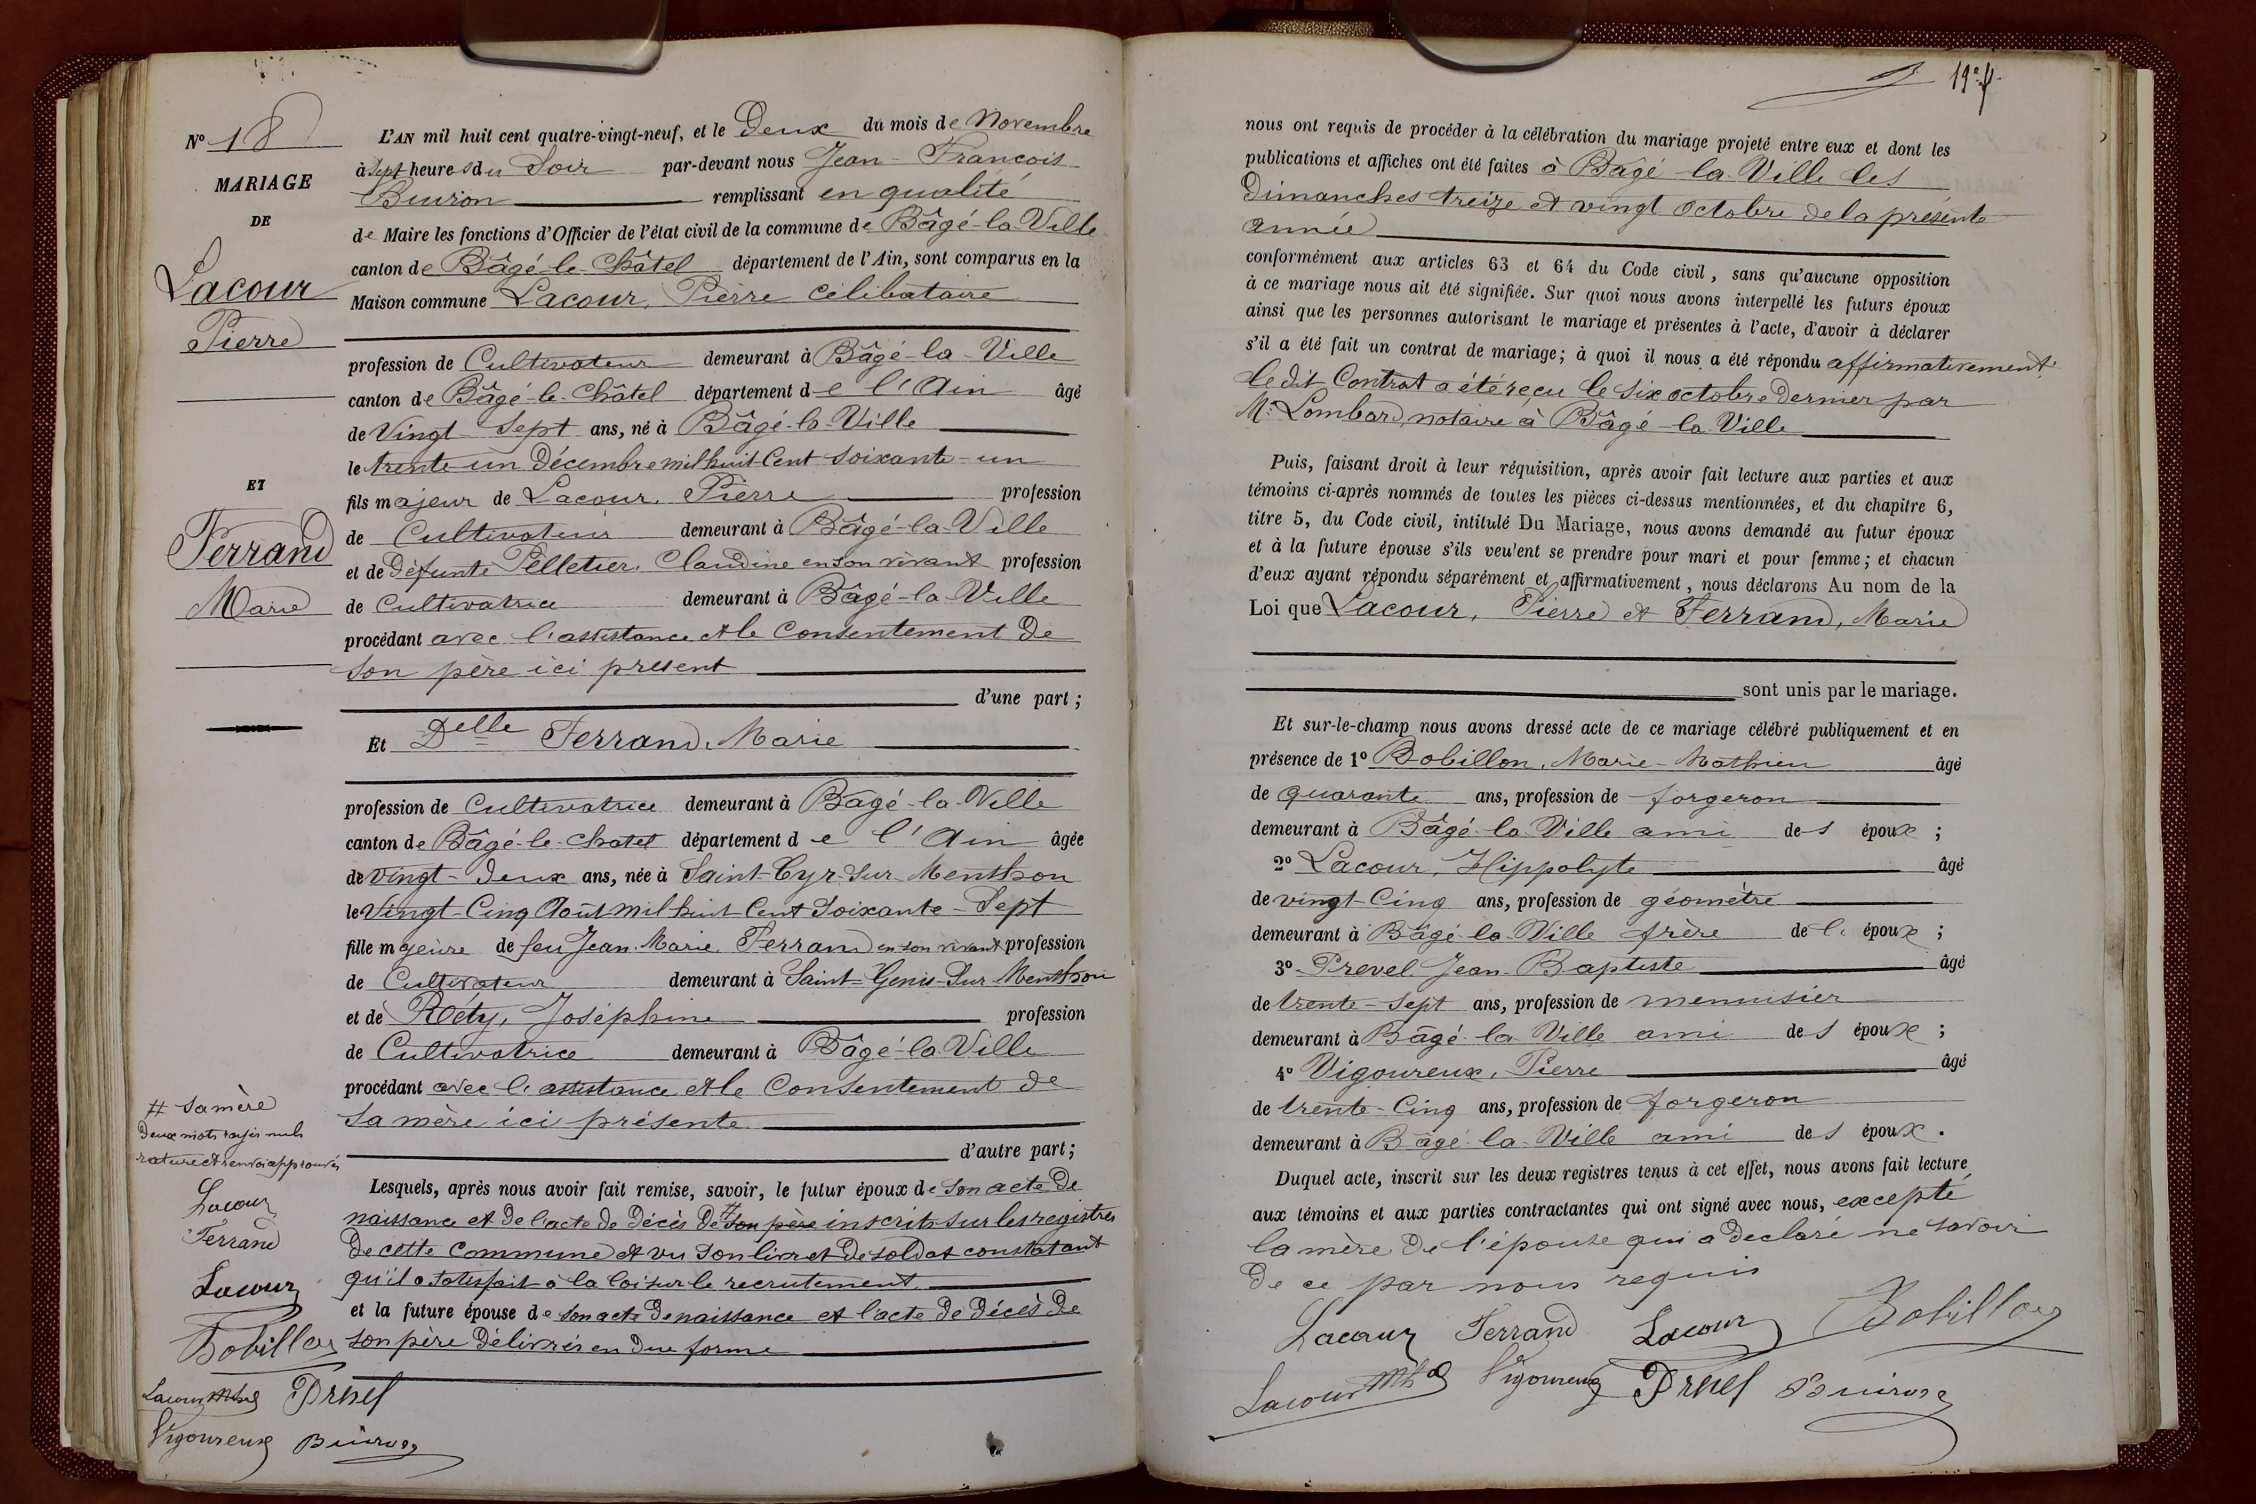 N° 18
MARIAGE
DE
Lacour
Pierre
ET
Ferrand
Marie
L'AN mil huit cent quatre-vingt-neuf, et le Deux du mois de Novembre
à Sept heures du Soir par-devant nous Jean-François
Buiron remplissant en qualité
de Maire les fonctions d'Officier de l'état civil de la commune de Bâgé-la-Ville
canton de Bâgé-le-Châtel département de l'Ain, sont comparus en la
Maison commune Lacour, Pierre célibataire
profession de Cultivateur demeurant à Bâgé-la-Ville
canton de Bâgé-le-Châtel département de l'Ain âgé
de Vingt-Sept ans, né à Bâgé-la-Ville
le trente-un Décembre mil huit Cent soixante-un
fils majeur de Lacour, Pierre profession
de Cultivateur demeurant à Bâgé-la-Ville
et de défunte Pelletier, Claudine en son vivant profession
de Cultivatrice demeurant à Bâgé-la-Ville
procédant avec l'assistance et le Consentement de
son père ici présent
d'une part ;
Et Delle Ferrand, Marie
profession de Cultivatrice demeurant à Bâgé-la-Ville
canton de Bâgé-le-Chatel département de l'Ain âgée
de Vingt-deux ans, née à Saint-Cyr-Sur-Menthon
le Vingt-Cinq Août mil huit Cent Soixante-Sept
fille majeure de feu Jean-Marie Ferrand en son vivant profession
de Cultivateur demeurant à Saint-Genis-Sur-Menthon
et de Réty, Joséphine profession
de Cultivatrice demeurant à Bâgé-la-Ville
procédant avec l'assistance et le Consentement de
sa mère ici présente
d'autre part ;
Lesquels, après nous avoir fait remise, savoir, le futur époux de son acte de
naissance et de l'acte de décès de # son père inscrits sur les registres
de cette Commune et vu son livret de soldat constatant
qu'il a satisfait à la loi sur le recrutement
et la future épouse de son acte de naissance et l'acte de décès de
son père délivrés en due forme
# sa mère
Deux mots rayés nuls
rature et renvoi approuvés
Lacour
Ferrand
Lacour
Bobillon
Lacour
Prevel
Vigoureux Buiron
19e
nous ont requis de procéder à la célébration du mariage projeté entre eux et dont les
publications et affiches ont été faites à Bâgé-la-Ville les
dimanches treize et vingt Octobre de la présente
année
conformément aux articles 63 et 64 du Code civil, sans qu'aucune opposition
à ce mariage nous ait été signifiée. Sur quoi nous avons interpellé les futurs époux
ainsi que les personnes autorisant le mariage et présentes à l'acte, d'avoir à déclarer
s'il a été fait un contrat de mariage ; à quoi il nous a été répondu affirmativement
le dit Contrat a été reçu le six octobre dernier par
Me Lombard, notaire à Bâgé-la-Ville
Puis, faisant droit à leur réquisition, après avoir fait lecture aux parties et aux
témoins ci-après nommés de toutes les pièces ci-dessus mentionnées, et du chapitre 6,
titre 5, du Code civil, intitulé Du Mariage, nous avons demandé au futur époux
et à la future épouse s'ils veulent se prendre pour mari et pour femme ; et chacun
d'eux ayant répondu séparément et affirmativement, nous déclarons Au nom de la
Loi que Lacour, Pierre et Ferrand, Marie
sont unis par le mariage.
Et sur-le-champ nous avons dressé acte de ce mariage célébré publiquement et en
présence de 1° Bobillon, Marie-Mathieu âgé
de quarante ans, profession de forgeron
demeurant à Bâgé-la-Ville ami des époux ;
2° Lacour, Hippolyte âgé
de vingt-Cinq ans, profession de géomètre
demeurant à Bâgé-la-Ville frère de l' époux ;
3° Prevel Jean-Baptiste âgé
de trente-Sept ans, profession de menuisier
demeurant à Bâgé-la-Ville ami des époux ;
4° Vigoureux, Pierre âgé
de trente-Cinq ans, profession de forgeron
demeurant à Bâgé-la-Ville ami des époux.
Duquel acte, inscrit sur les deux registres tenus à cet effet, nous avons fait lecture
aux témoins et aux parties contractantes qui ont signé avec nous, excepté
la mère de l'épouse qui a déclaré ne savoir
de ce par nous requis
Lacour Ferrand Lacour Bobillon
Lacour Vigoureux Prevel Buiron